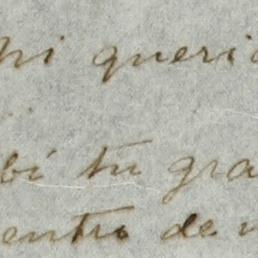 mi queri
bí tu gra
entro de